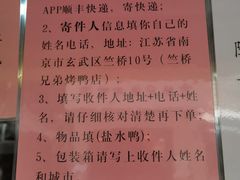 APP顺丰快递，寄快递；
2、寄件人信息填你自己的
姓名电话，地址：江苏省南
京市玄武区竺桥10号（竺桥
兄弟烤鸭店）；
3、填写收件人地址+电话+姓
名，请仔细核对清楚再下单；
4、物品填(盐水鸭)；
5、包装箱请写上收件人姓名
和城市